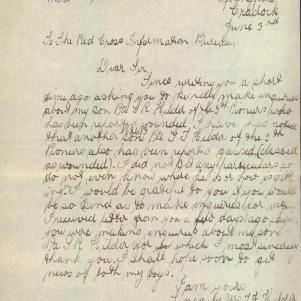 Cradock
June 3rd
To The Red Cross Information Bureau.
Dear Sir,
Since writing you a short
time ago asking you to kindly make inquiries
about my son Pte S. R. Kidd of the 3rd Pioneers (who
has been reported wounded). I have had notice
that another son Pte. of the 5th
Pioneers also has been reported gassed (classed
as wounded). I did not get any particulars so
do not even know where he is or how is gett-
ing. I would be grateful to you if you would
be so kind as to make enquiries for me.
I received letter from you a few days ago saying
you were making inquiries about my son
Pte S. R. for which I most sincerely
thank you. I shall hope soon to get
news of both my boys.
I am yours